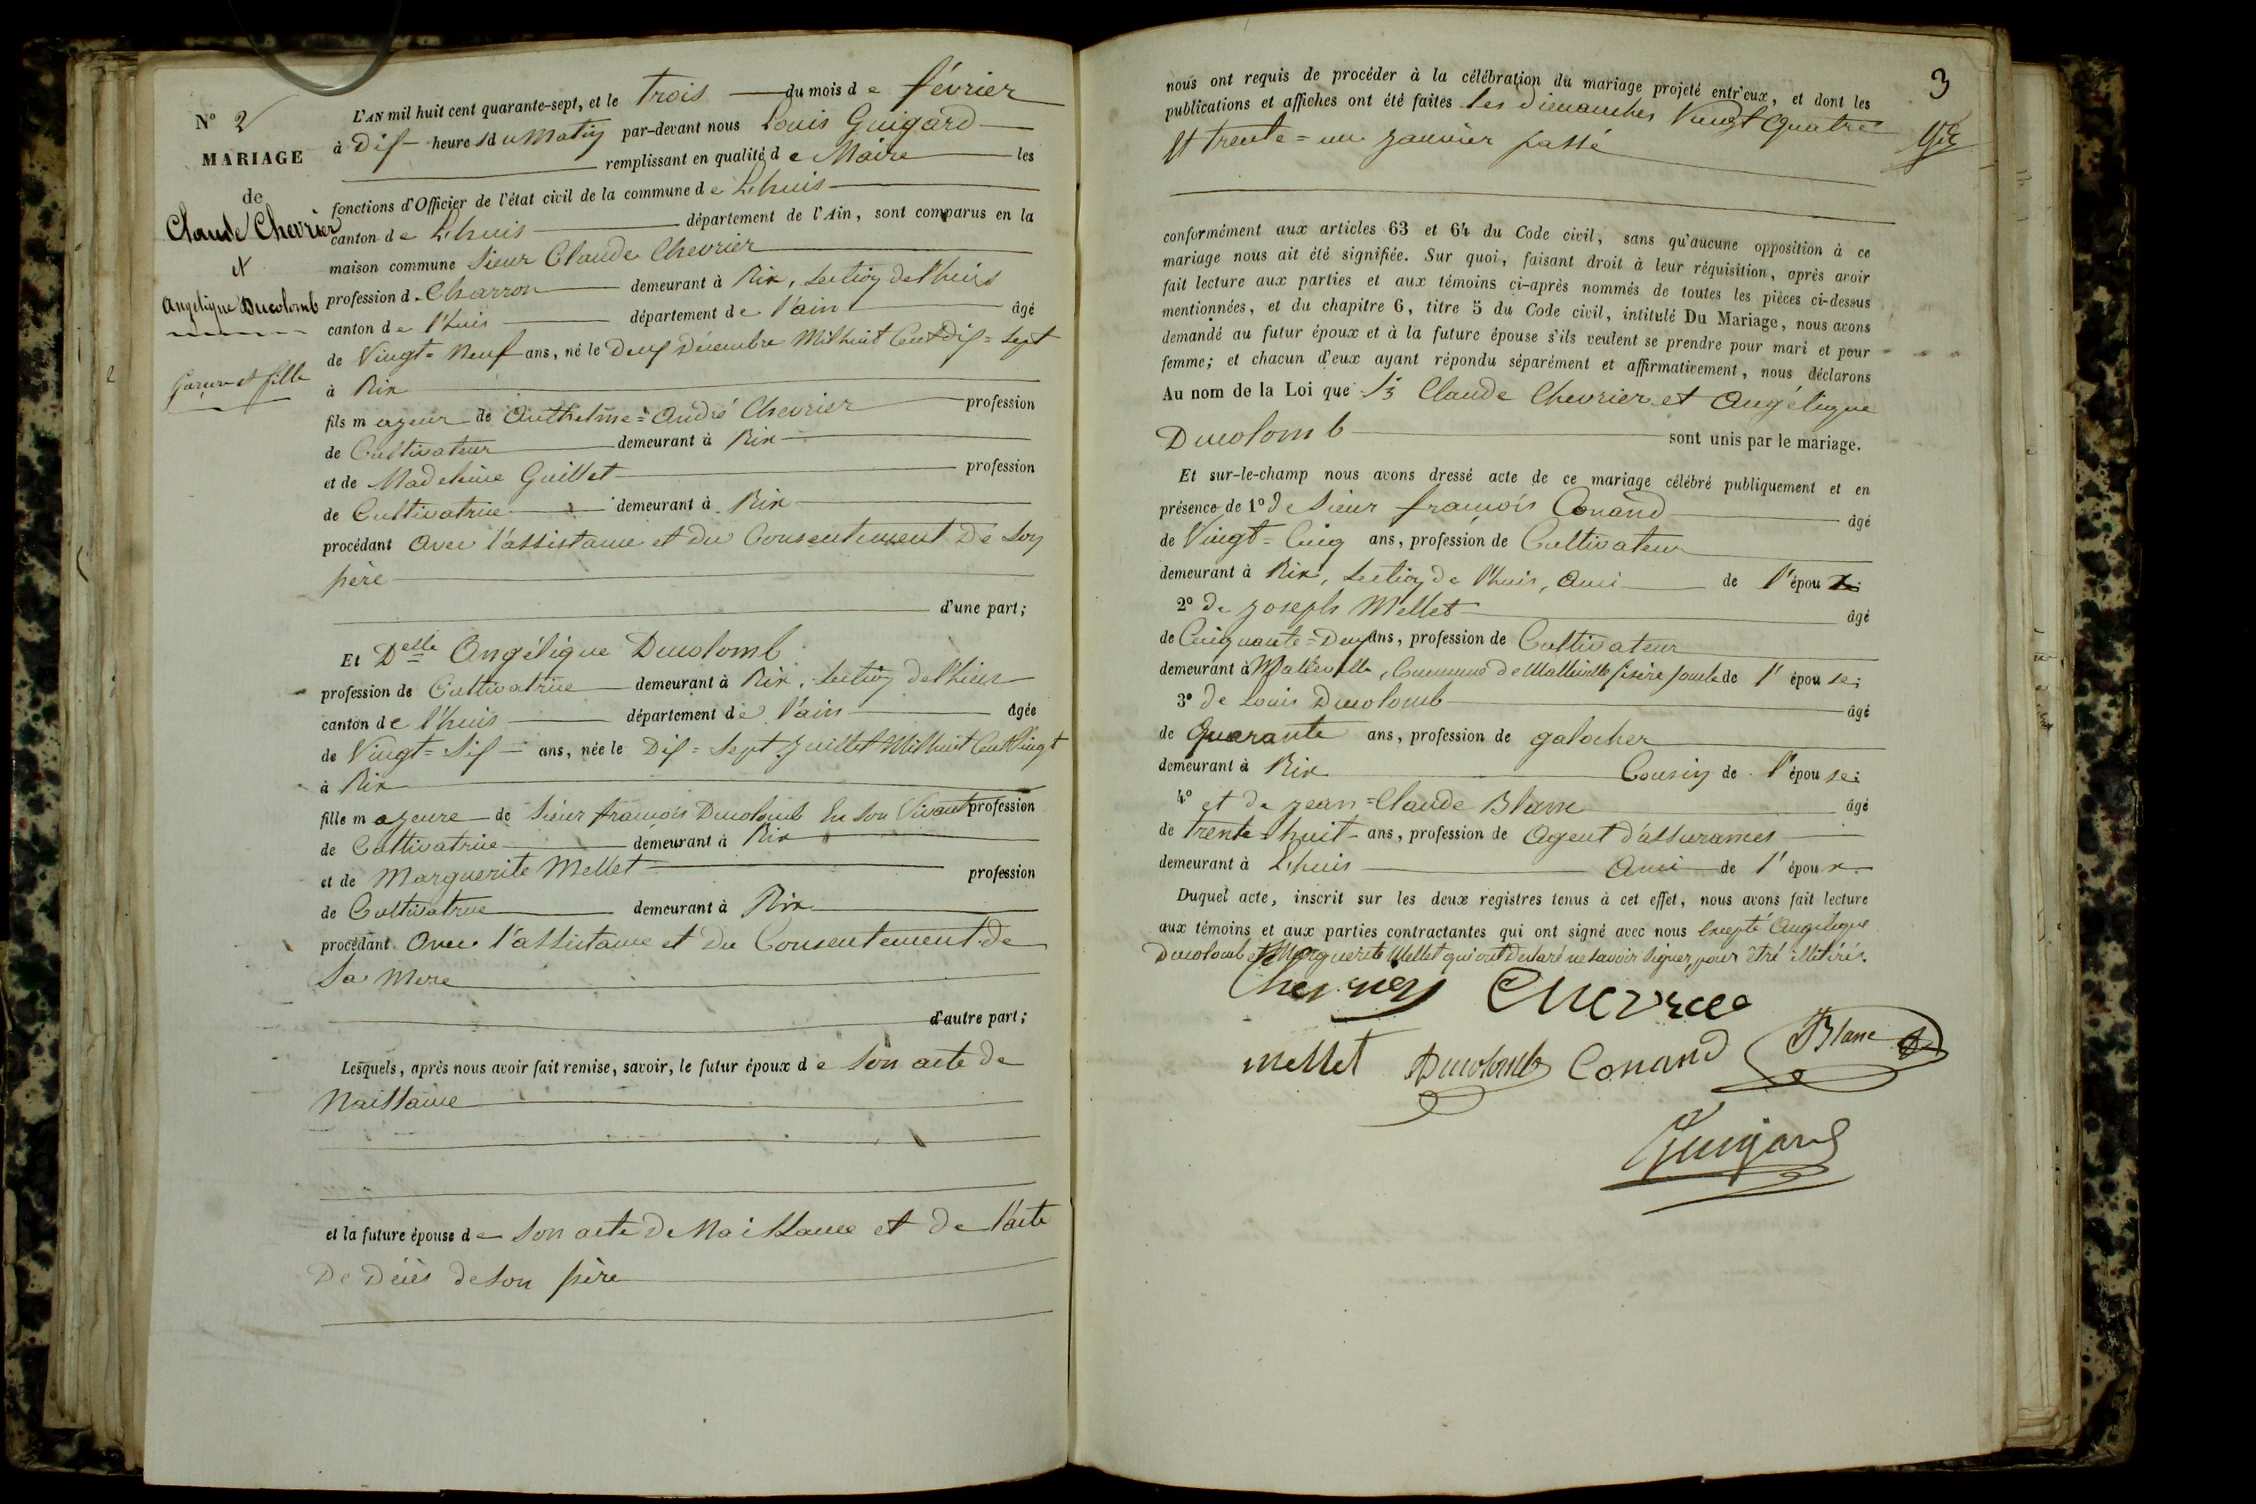 N° 2
MARIAGE
de
Claude Chevrier
et
Angelique Ducolomb
Garçon et fille
L'AN mil huit cent quarante-sept, et le trois du mois de février
à Dix heures du Matin par-devant nous Louis Guigard
remplissant en qualité de Maire les
fonctions d'Officier de l'état civil de la commune de Lhuis
canton de Lhuis département de l'Ain, sont comparus en la
maison commune Sieur Claude Chevrier
profession d Charron demeurant à Rix, Section de lhuis
canton de l'huis département de l'ain âgé
de Vingt=Neuf ans, né le Deux Décembre Mil huit Cent Dix=Sept
à Rix
fils majeur de Anthelme=André Chevrier profession
de Cultivateur demeurant à Rix
et de Madeleine Guillet profession
de Cultivatrice demeurant à Rix
procédant avec l'assistance et du Consentement De Son
père
d'une part;
Et Delle Angélique Ducolomb
profession de Cultivatrice demeurant à Rix, Section de lhuis
canton de l'huis département de l'ain âgée
de Vingt=Six ans, née le Dix=Sept Juillet Mil huit Cent Vingt
à Rix
fille majeure de Sieur françois Ducolomb En Son Vivant profession
de Cultivatrice demeurant à Rix
et de Marguerite Mellet profession
de Cultivatrice demeurant à Rix
procédant Avec l'assistance et du Consentement de
Sa Mere
d'autre part;
Lesquels, après nous avoir fait remise, savoir, le futur époux de Son acte de
Naissance
et la future épouse de Son acte De Naissance et De l'acte
De Décès de Son père
3
nous ont requis de procéder à la célébration du mariage projeté entr'eux, et dont les
publications et affiches ont été faites les Dimanches Vingt Quatre
Et trente=un janvier passé
conformément aux articles 63 et 64 du Code civil, sans qu'aucune opposition à ce
mariage nous ait été signifiée. Sur quoi, faisant droit à leur réquisition, après avoir
fait lecture aux parties et aux témoins ci-après nommés de toutes les pièces ci-dessus
mentionnées, et du chapitre 6, titre 5 du Code civil, intitulé Du Mariage, nous avons
demandé au futur époux et à la future épouse s'ils veulent se prendre pour mari et pour
femme; et chacun d'eux ayant répondu séparément et affirmativement, nous déclarons
Au nom de la Loi que Sr Claude Chevrier et Angélique
Ducolomb sont unis par le mariage.
Et sur-le-champ nous avons dressé acte de ce mariage célébré publiquement et en
présence de 1° De Sieur françois Conand âgé
de Vingt=Cinq ans, profession de Cultivateur
demeurant à Rix, Section de l'huis, Ami de l'époux;
2° De Joseph Mellet âgé
de Cinquante=Deux ans, profession de Cultivateur
demeurant à Malleville, Commune de Malleville (isère) oncle de l'épouse;
3° de Louis Ducolomb âgé
de Quarante ans, profession de galocher
demeurant à Rix Cousin de l'épouse;
4° et de Jean=Claude Blanc âgé
de trente=huit ans, profession de Agent d'assurances
demeurant à Lhuis Ami de l'époux.
Duquel acte, inscrit sur les deux registres tenus à cet effet, nous avons fait lecture
aux témoins et aux parties contractantes qui ont signé avec nous Excepté Angelique
Ducolomb et Marguerite Mellet qui ont Déclaré ne Savoir Signer, pour être illitérés.
Chevrier Chevrier
mellet Ducolomb Conand Blanc
Guigard